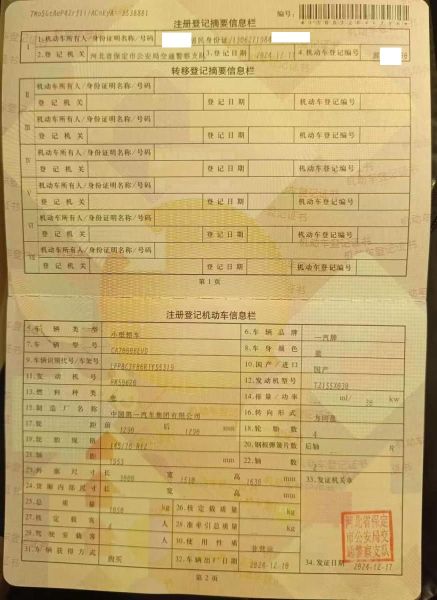 注册登记摘要信息栏
编号:
I
1.机动车所有人/身份证明名称/号码
居民身份证/
2.登记机关
河北省保定市公安局交通警察支队
3.登记日期
2024-12-17
4.机动车登记编号
转移登记摘要信息栏
II
机动车所有人/身份证明名称/号码
登记机关
登记日期
机动车登记编号
III
机动车所有人/身份证明名称/号码
登记机关
登记日期
机动车登记编号
IV
机动车所有人/身份证明名称/号码
登记机关
登记日期
机动车登记编号
V
机动车所有人/身份证明名称/号码
登记机关
登记日期
机动车登记编号
VI
机动车所有人/身份证明名称/号码
登记机关
登记日期
机动车登记编号
VII
机动车所有人/身份证明名称/号码
登记机关
登记日期
机动车登记编号
第1页
注册登记机动车信息栏
5.车辆类型
小型轿车
6.车辆品牌
一汽牌
7.车辆型号
8.车身颜色
蓝
9.车辆识别代号/车架号
10.国产/进口
国产
11.发动机号
12.发动机型号
13.燃料种类
电
14.排量/功率
ml/
kw
15.制造厂名称
中国第一汽车集团有限公司
16.转向形式
方向盘
17.轮距
前 1290 后 1290 mm
18.轮胎数
4
19.轮胎规格
20.钢板弹簧片数
后轴
片
21.轴距
1953 mm
22.轴数
2
23.外廓尺寸
长 3000 宽 1510 高 1630 mm
33.发证机关章
24.货厢内部尺寸
长 宽 高 mm
25.总质量
1050 kg
26.核定载质量
kg
27.核定载客
4 人
28.准牵引总质量
kg
29.驾驶室载客
人
30.使用性质
非营运
31.车辆获得方式
购买
32.车辆出厂日期
2024-12-10
34.发证日期
2024-12-17
河北省保定
市公安局交
通警察支队
第2页